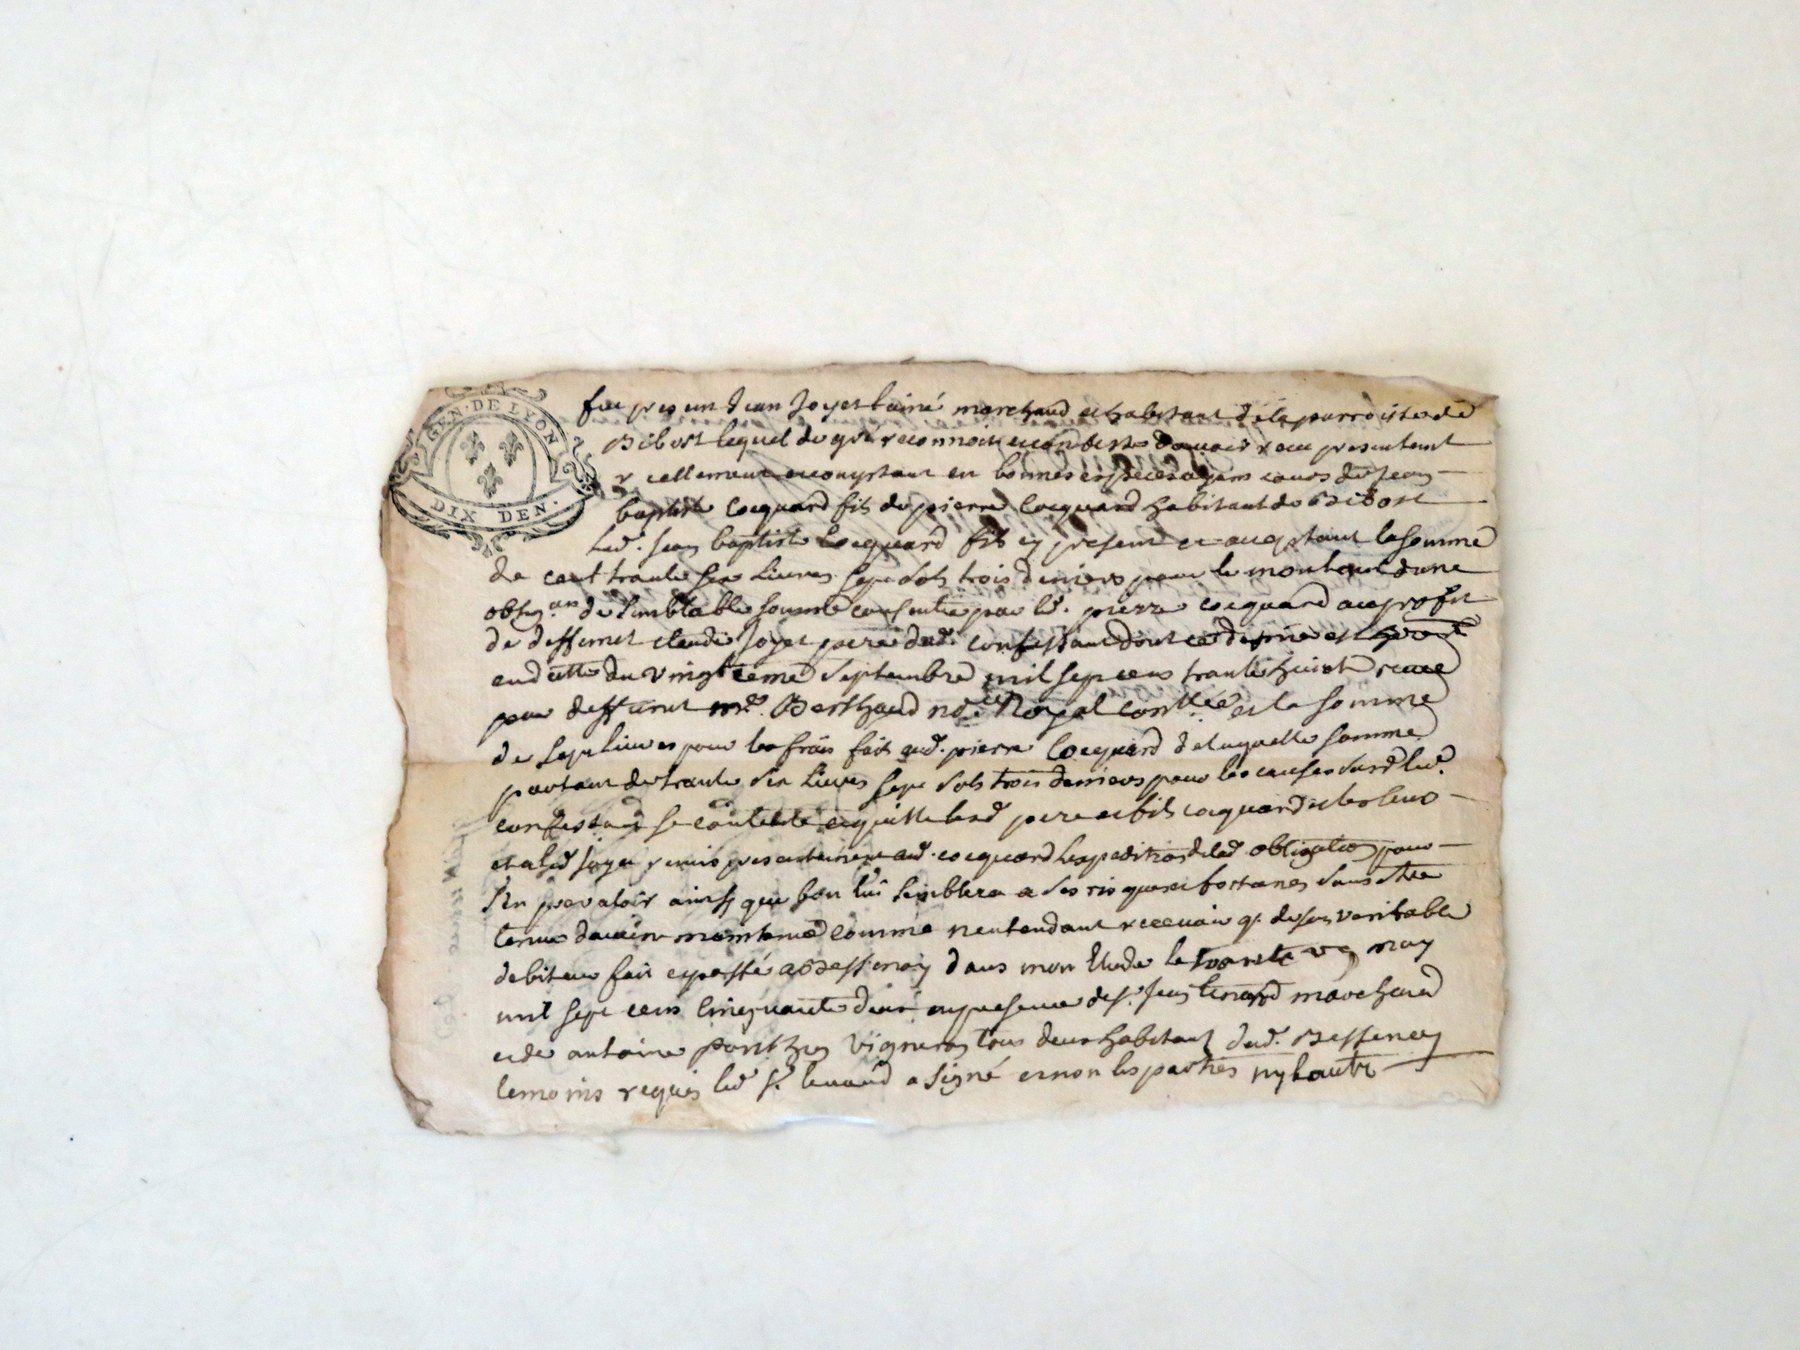 GEN · DE LYON
DIX DEN.
fut present Jean Joyet lainé marchand et habitant de la parroisse de
Bibost lequel de gré reconnoit et confesse davoir receu presentement
reellement et comptant en bonnes especes ayans cours de Jean
baptiste Cocquard fils de pierre Cocquard habitant de Bibost
led. Jean baptiste Cocquard fils cy present et acceptant la somme
de cent trante six Livres sept sols trois deniers pour le montant dune
oblig.on de semblable somme consentie par led. pierre cocquard au profit
de deffunct claude Joyet pere dud. confessant dont ce dernier est
en datte du vingtieme septembre mil sept cens trante huict receue
par deffunct m.e Berthaud no.re Royal et la somme
de sept livres pour les frais fait aud. pierre Cocquard de laquelle somme
de trante six Livres sept sols trois deniers pour les causes susd. led.
confessant se contente et quitte lesd. pere et fils cocquard et les leurs
et a led. Joyet remis presentement aud. cocquard lexpedition de lad. obligation pour
sen prevaloir ainsy que bon lui semblera a ses risques et fortunes sans etre
tenu daucune comme nentendant recevoir q. de son veritable
debiteur fait et passé a Bessenay dans mon Etude le may
mil sept cens Cinquante deux en presence de s.r Jean marchand
et de antoine vigneron tous deux habitant dud. Bessenay
temoins requis led. s.r a signé et non les parties ny lautre